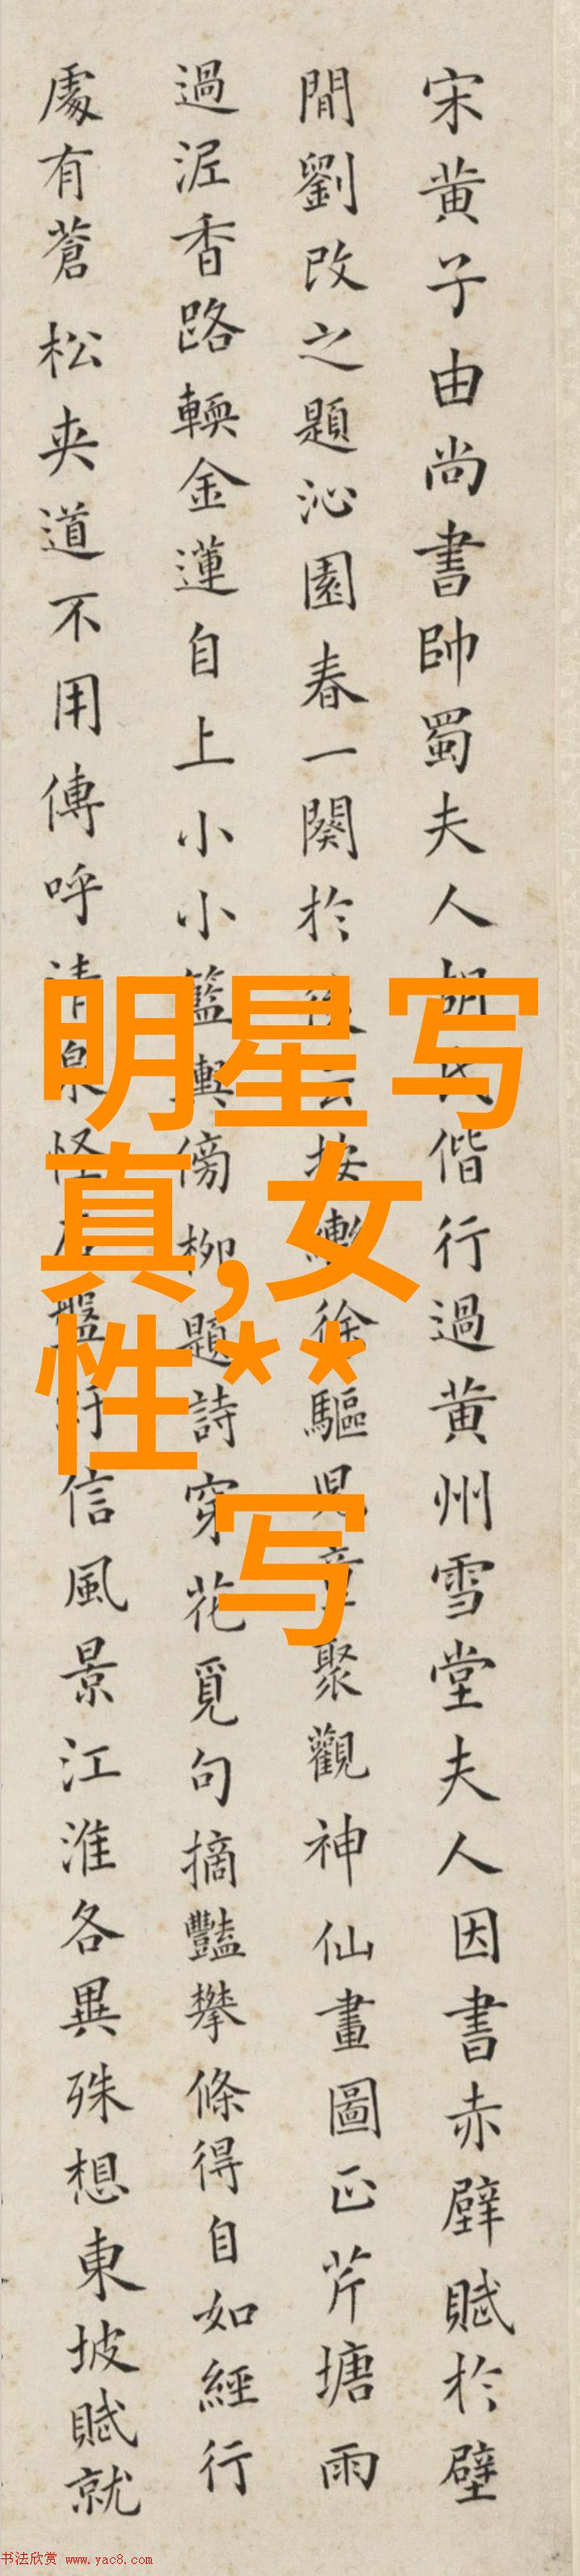 宋黄子由尚書帥蜀夫人胡氏偕行過黄州雪堂夫人因書赤壁賦於壁
間劉改之題沁園春一闋於後云按轡徐驅児童聚觀神仙畫圖正芹塘雨
過泥香路輭金蓮自上小小籃輿傍柳題詩穿花覓句摘豔攀條得自如經行
處有蒼松夾道不用傳呼清泉怪石盤紆信風景江淮各異殊想東坡賦就
明星写
真,女
性**
写
书法欣赏 www.yac8.com